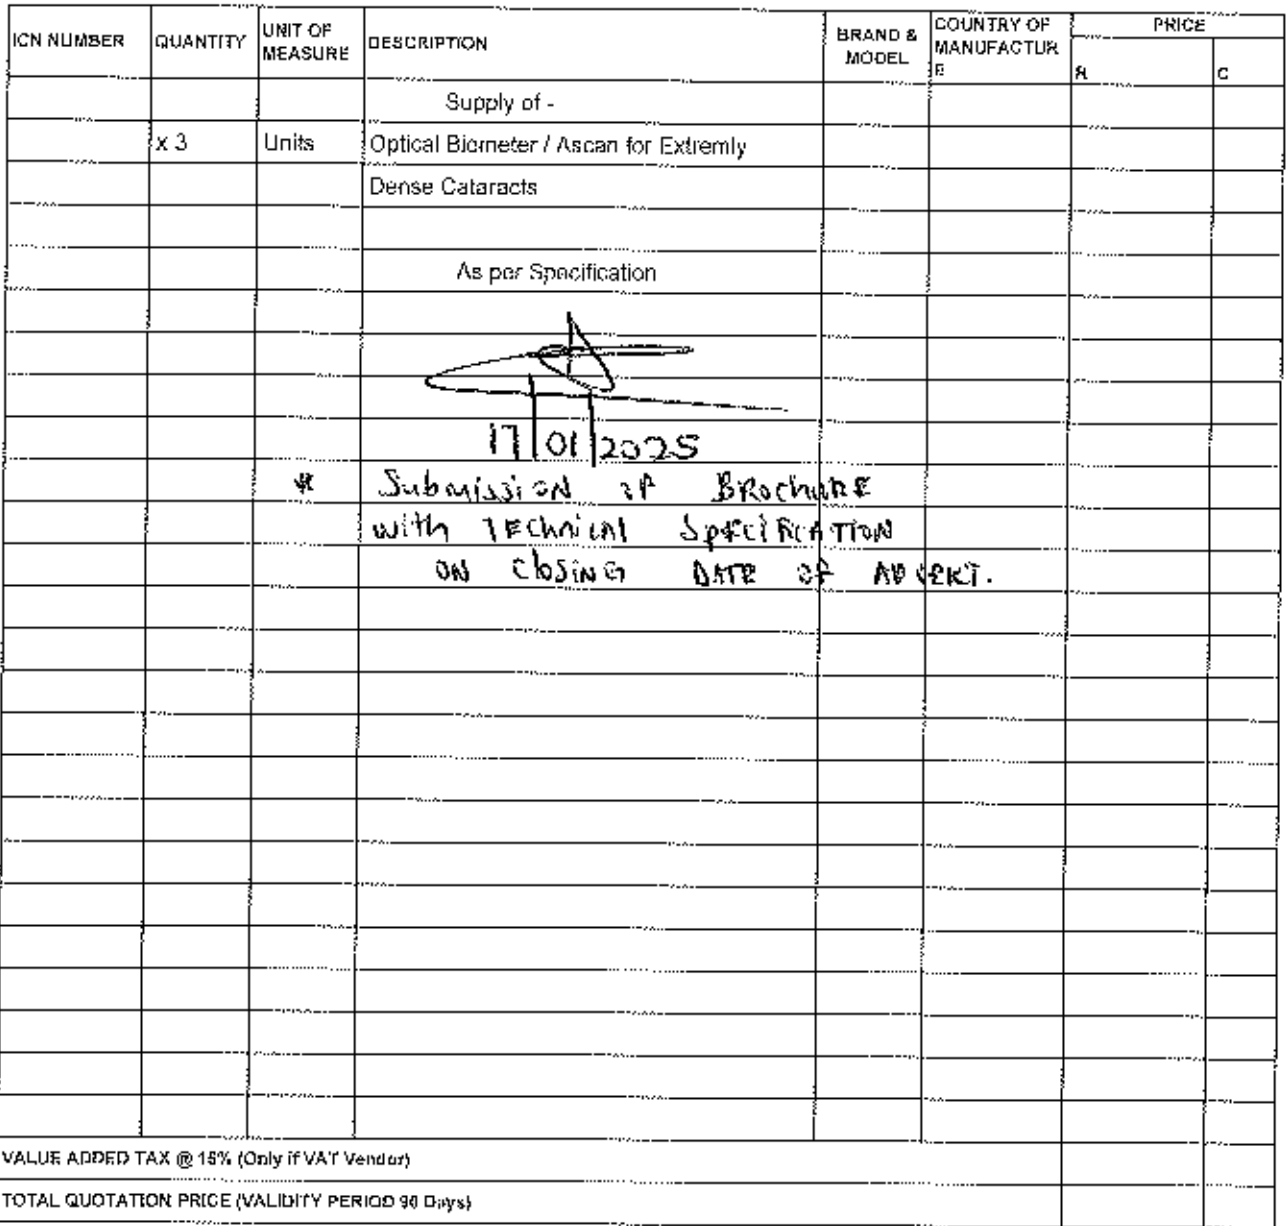 ICN NUMBER QUANTITY UNIT OF MEASURE DESCRIPTION BRAND & MODEL COUNTRY OF MANUFACTURE PRICE
R C
Supply of -
x 3 Units Optical Biometer / Ascan for Extremly
Dense Cataracts
As per Specification
17/01/2025
* Submission of BRochuRE
with TEChnicAl SpECiFicATION
ON ClOSiNG DATE OF ADVERT.
VALUE ADDED TAX @ 15% (Only if VAT Vendor)
TOTAL QUOTATION PRICE (VALIDITY PERIOD 90 Days)